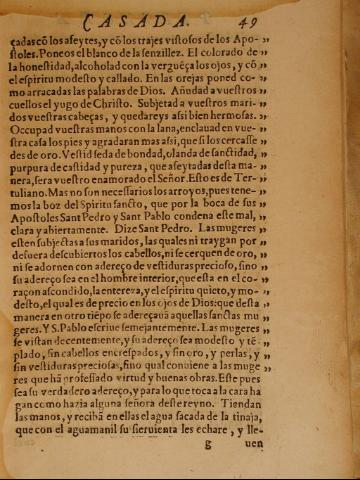 CASADA. 49
çadas cõ los afeytes, y cõ los trajes vistosos de los Apo- ”
stoles. Poneos el blanco de la senzillez. El colorado de ”
la honestidad, alcoholad con la verguẽça los ojos, y cõ ”
el espiritu modesto y callado. En las orejas poned co- ”
mo arracadas las palabras de Dios. Añudad a vuestros ”
cuellos el yugo de Christo. Subjetad a vuestros mari- ”
dos vuestras cabeças, y quedareys assi bien hermosas. ”
Occupad vuestras manos con la lana, enclauad en vue- ”
stra casa los pies y agradaran mas assi, que si los cercasse ”
des de oro. Vestid seda de bondad, olanda de sanctidad, ”
purpura de castidad y pureza, que afeytadas desta ma- ”
nera, sera vuestro enamorado el Señor. Esto es de Ter- ”
tuliano. Mas no son necessarios los arroyos, pues tene- ”
mos la boz del Spiritu sancto, que por la boca de sus ”
Apostoles Sant Pedro y Sant Pablo condena este mal, ”
clara y abiertamente. Dize Sant Pedro. Las mugeres ”
esten subjectas a sus maridos, las quales ni traygan por ”
defuera descubiertos los cabellos, ni se cerquen de oro, ”
ni se adornen con adereço de vestiduras precioso, sino ”
su adereço sea en el hombre interior, que esta en el co- ”
raçon ascondido, la entereza, y el espiritu quieto, y mo- ”
desto, el qual es de precio en los ojos de Dios: que desta ”
manera en otro tiẽpo se adereçauã aquellas sanctas mu ”
geres. Y S. Pablo escriue semejantemente. Las mugeres ”
se vistan decentemente, y su adereço sea modesto y tẽ- ”
plado, sin cabellos encrespados, y sin oro, y perlas, y ”
sin vestiduras preciosas, sino qual conuiene a las muge ”
res que hã professado virtud y buenas obras. Este pues
sea su verdadero adereço, y para lo que toca a la cara ha
gan como hazia alguna señora deste reyno. Tiendan
las manos, y recibã en ellas el agua sacada de la tinaja,
que con el aguamanil su sieruienta les echare, y lle-
g uen